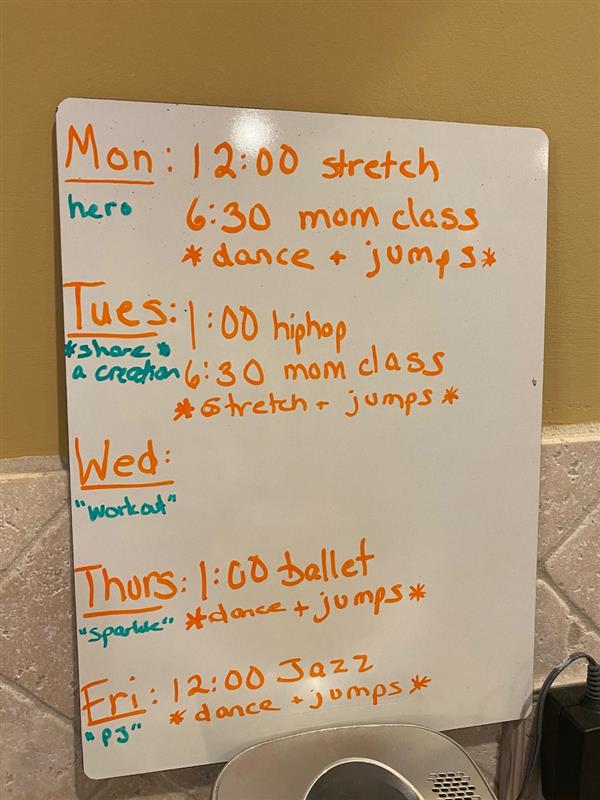 Mon: 12:00 stretch
hero 6:30 mom class
*dance + jumps*
Tues: 1:00 hiphop
*share*
a creation 6:30 mom class
*stretch + jumps*
Wed:
"workout"
Thurs: 1:00 ballet
"sparkle" *dance + jumps*
Fri: 12:00 Jazz
"PJ" *dance + jumps*